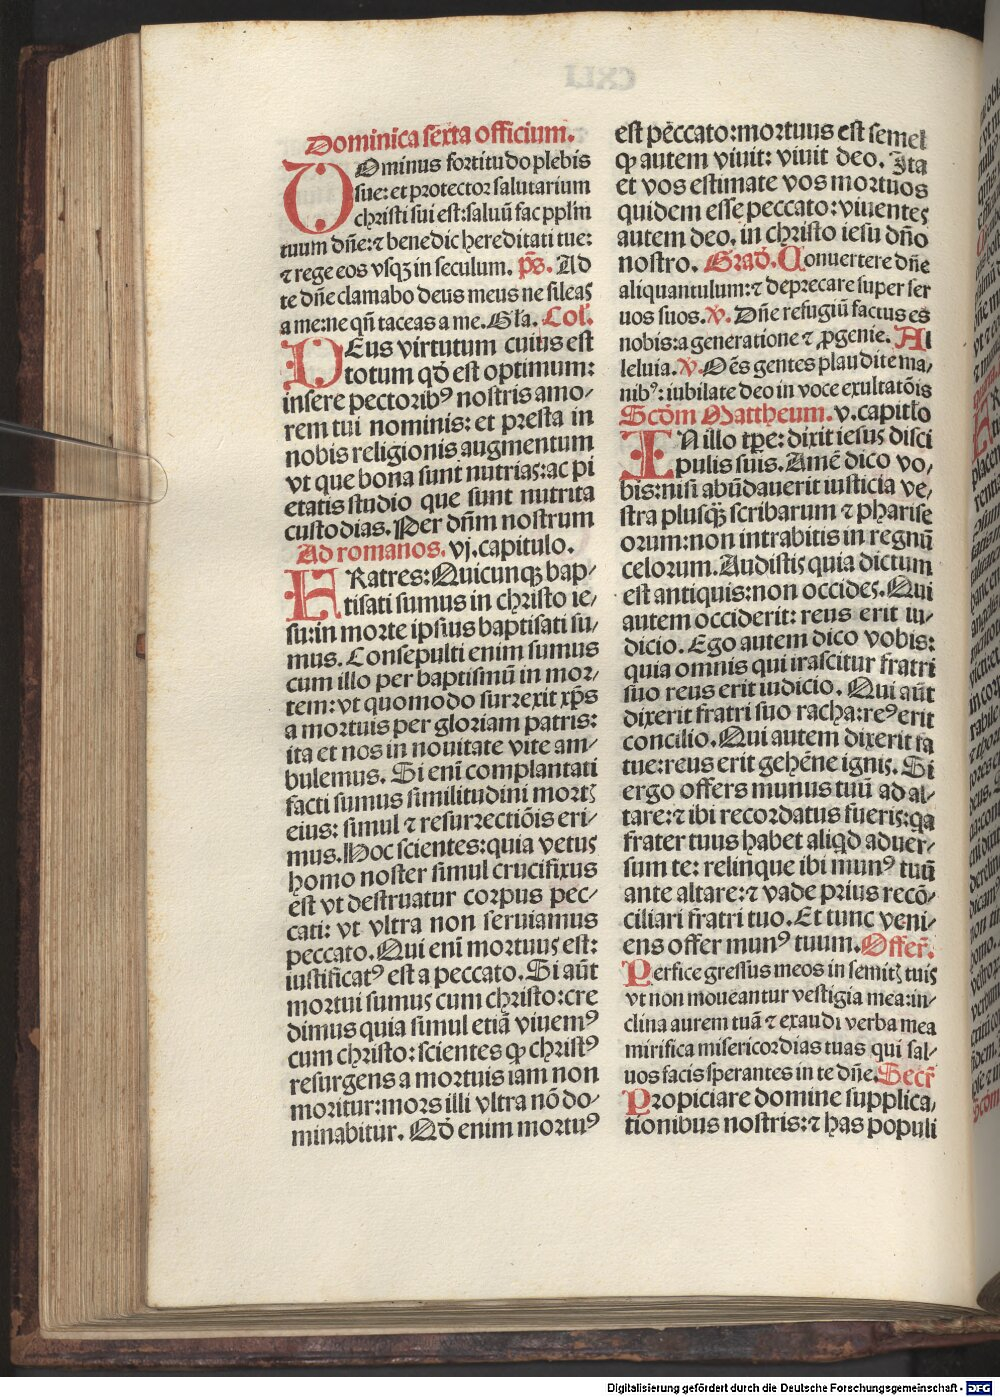 Dominica sexta officium.
DOminus fortitudo plebis
sue: et protector salutarium
christi sui est: saluū fac pplm̄
tuum dn̄e: ⁊ benedic hereditati tue:
⁊ rege eos vsqꝫ in seculum. p̄s. Ad
te dn̄e clamabo deus meus ne sileas
a me: ne qn̄ taceas a me. Gl̄a. Col̄.
DEus virtutum cuius est
totum qd̄ est optimum:
insere pectoribꝰ nostris amo⸗
rem tui nominis: et presta in
nobis religionis augmentum
vt que bona sunt nutrias: ac pi
etatis studio que sunt nutrita
custodias. Per dn̄m nostrum
Ad romanos. vj. capitulo.
FRatres: Quicunqꝫ bap⸗
tisati sumus in christo ie⸗
su: in morte ipsius baptisati su⸗
mus. Consepulti enim sumus
cum illo per baptismū in mor⸗
tem: vt quomodo surrexit xp̄s
a mortuis per gloriam patris:
ita et nos in nouitate vite am⸗
bulemus. Si eni complantati
facti sumus similitudini mortꝭ
eius: simul ⁊ resurrectiōis eri⸗
mus. Hoc scientes: quia vetus
homo noster simul crucifixus
est vt destruatur corpus pec⸗
cati: vt vltra non seruiamus
peccato. Qui eni mortuus est:
iustificatꝰ est a peccato. Si aūt
mortui sumus cum christo: cre
dimus quia simul etiā viuemꝰ
cum christo: scientes ꝙ christꝰ
resurgens a mortuis iam non
moritur: mors illi vltra nō do⸗
minabitur. Qd̄ enim mortuꝰ
est peccato: mortuus est semel
ꝙ autem viuit: viuit deo. Ita
et vos estimate vos mortuos
quidem esse peccato: viuentes
autem deo. in christo iesu dn̄o
nostro. Grad̄. Conuertere dn̄e
aliquantulum: ⁊ deprecare super ser
uos suos. ℣. Dn̄e refugiū factus es
nobis: a generatione ⁊ ꝓgenie. Al
leluia. ℣. Oēs gentes plaudite ma⸗
nibꝰ: iubilate deo in voce exultatōis
Scd̄m Mattheum. v. capitl̄o
IN illo tp̄e: dixit iesus disci
pulis suis. Amē dico vo⸗
bis: nisi abūdauerit iusticia ve⸗
stra plusqꝫ̄ scribarum ⁊ pharise
orum: non intrabitis in regnū
celorum. Audistis quia dictum
est antiquis: non occides. Qui
autem occiderit: reus erit iu⸗
dicio. Ego autem dico vobis:
quia omnis qui irascitur fratri
suo reus erit iudicio. Qui aūt
dixerit fratri suo racha: reꝰ erit
concilio. Qui autem dixerit fa
tue: reus erit gehēne ignis. Si
ergo offers munus tuū ad al⸗
tare: ⁊ ibi recordatus fueris: qa
frater tuus habet aliqd aduer⸗
sum te: relinque ibi munꝰ tuū
ante altare: ⁊ vade prius recō⸗
ciliari fratri tuo. Et tunc veni⸗
ens offer munꝰ tuum. Offer̄.
Perfice gressus meos in semitꝭ tuis
vt non moueantur vestigia mea: in⸗
clina aurem tuā ⁊ exaudi verba mea
mirifica misericordias tuas qui sal⸗
uos facis sperantes in te dn̄e. Secr̄
Propiciare domine supplica⸗
tionibus nostris: ⁊ has populi
Digitalisierung gefördert durch die Deutsche Forschungsgemeinschaft - DFG